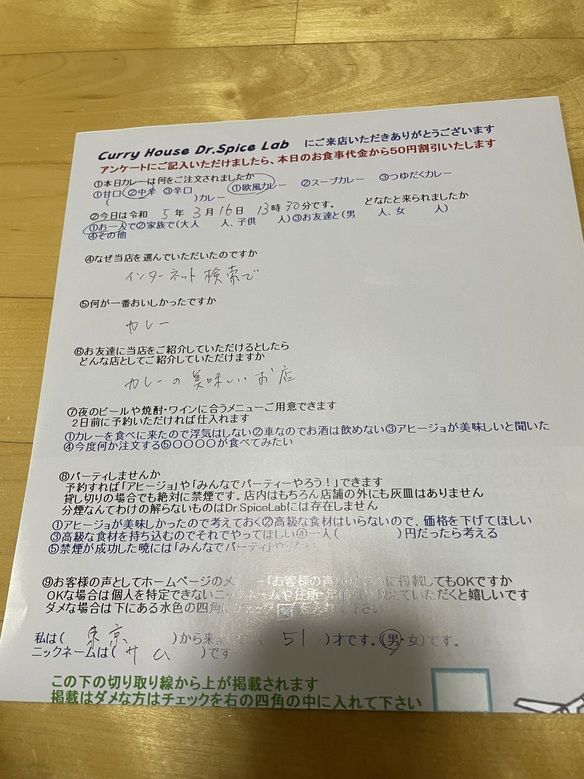 Curry House Dr.Spice Lab にご来店いただきありがとうございます
アンケートにご記入いただけましたら、本日のお食事代金から50円割引いたします
①本日カレーは何をご注文されましたか
①甘口 ②中辛 ③辛口 ①欧風カレー ②スープカレー ③つゆだくカレー
( )カレー
②今日は令和 5 年 3 月 16 日 13 時 30 分です。 どなたと来られましたか
①お一人で②家族で(大人 人、子供 人)③お友達と(男 人、女 人)
④その他
④なぜ当店を選んでいただいたのですか
インターネット検索で
⑤何が一番おいしかったですか
カレー
⑥お友達に当店をご紹介していただけるとしたら
どんな店としてご紹介していただけますか
カレーの美味しいお店
⑦夜のビールや焼酎・ワインに合うメニューご用意できます
2日前に予約いただければ仕入れます
①カレーを食べに来たので浮気はしない②車なのでお酒は飲めない③アヒージョが美味しいと聞いた
④今度何か注文する⑤〇〇〇〇が食べてみたい
⑧パーティしませんか
予約すれば「アヒージョ」や「みんなでパーティーやろう！」できます
貸し切りの場合でも絶対に禁煙です。店内はもちろん店舗の外にも灰皿はありません
分煙なんてわけの解らないものはDr.SpiceLabには存在しません
①アヒージョが美味しかったので考えておく②高級な食材はいらないので、価格を下げてほしい
③高級な食材を持ち込むのでそれでやってほしい④一人( )円だったら考える
⑤禁煙が成功した暁には「みんなでパーティ
⑨お客様の声としてホームページの 「お客様の声 に掲載してもOKですか
OKな場合は個人を特定できないニックネームや住所 していただくと嬉しいです
ダメな場合は下にある水色の四角に チェック を 下さい
私は( 東京 )から来 51 )才です。(男・女)です。
ニックネームは( サム )です
この下の切り取り線から上が掲載されます
掲載はダメな方はチェックを右の四角の中に入れて下さい